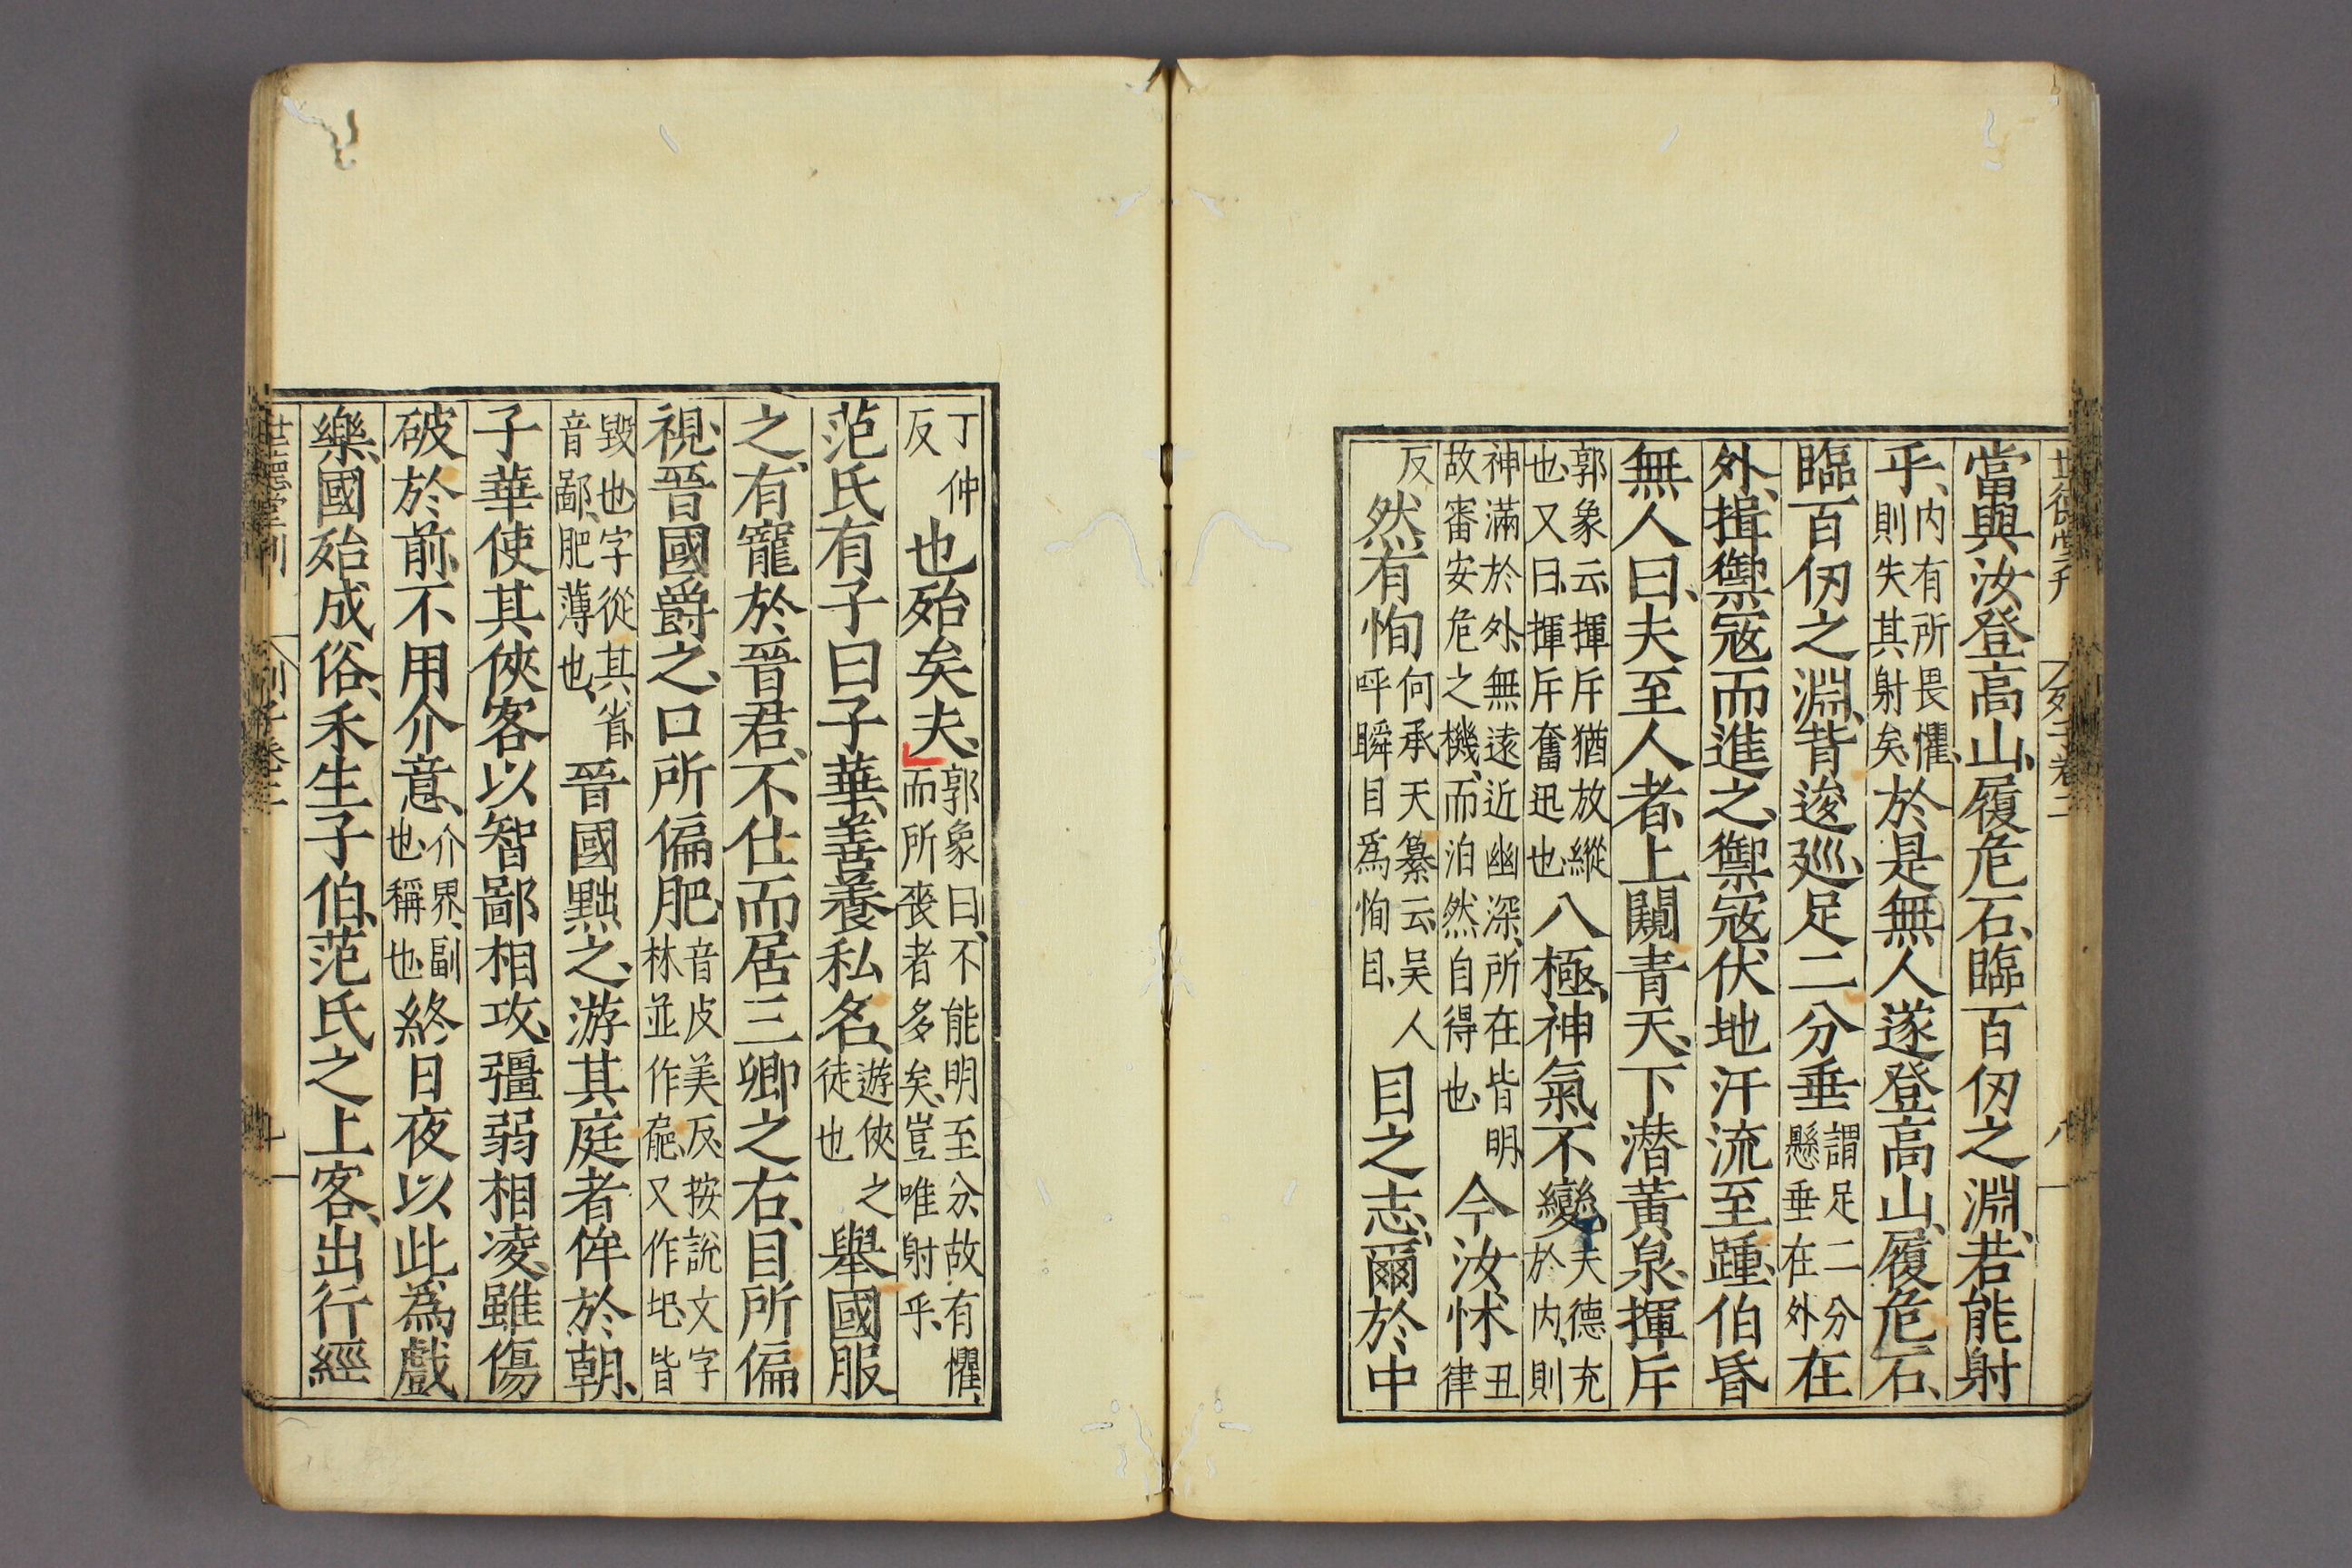 世德堂刊 列子卷二 八
當與汝登高山、履危石、臨百仞之淵、若能射
乎、内有所畏懼、則失其射矣、於是無人遂登高山、履危石、
臨百仞之淵、背逡巡、足二分垂謂足二分懸垂在外在
外、揖禦寇而進之、禦寇伏地汗流至踵、伯昏
無人曰、夫至人者、上闚青天、下潜黄泉、揮斥
郭象云、揮斥猶放縱也、又曰、揮斥奮迅也、八極、神氣不變、夫德充於内、則
神滿於外、無遠近幽深、所在皆明、故審安危之機、而泊然自得也、今汝怵丑律
反然有恂何承天纂云、吴人呼瞬目爲恂目、目之志、爾於中
丁仲反也殆矣夫、郭象曰、不能明至分、故有懼、而所喪者多矣、豈唯射乎、
范氏有子曰子華、善養私名、遊俠之徒也舉國服
之、有寵於晉君、不仕而居三卿之右、目所偏
視、晉國爵之、口所偏肥、音皮美反、按說文字林並作𡛷、又作圯、皆
毀也、字從其省、音鄙、肥薄也、晉國黜之、游其庭者侔於朝、
子華使其俠客以智鄙相攻、彊弱相凌、雖傷
破於前、不用介意、介界、副也、稱也、終日夜以此爲戲
樂、國殆成俗、禾生子伯、范氏之上客、出行經
世德堂刊 列子卷二 九